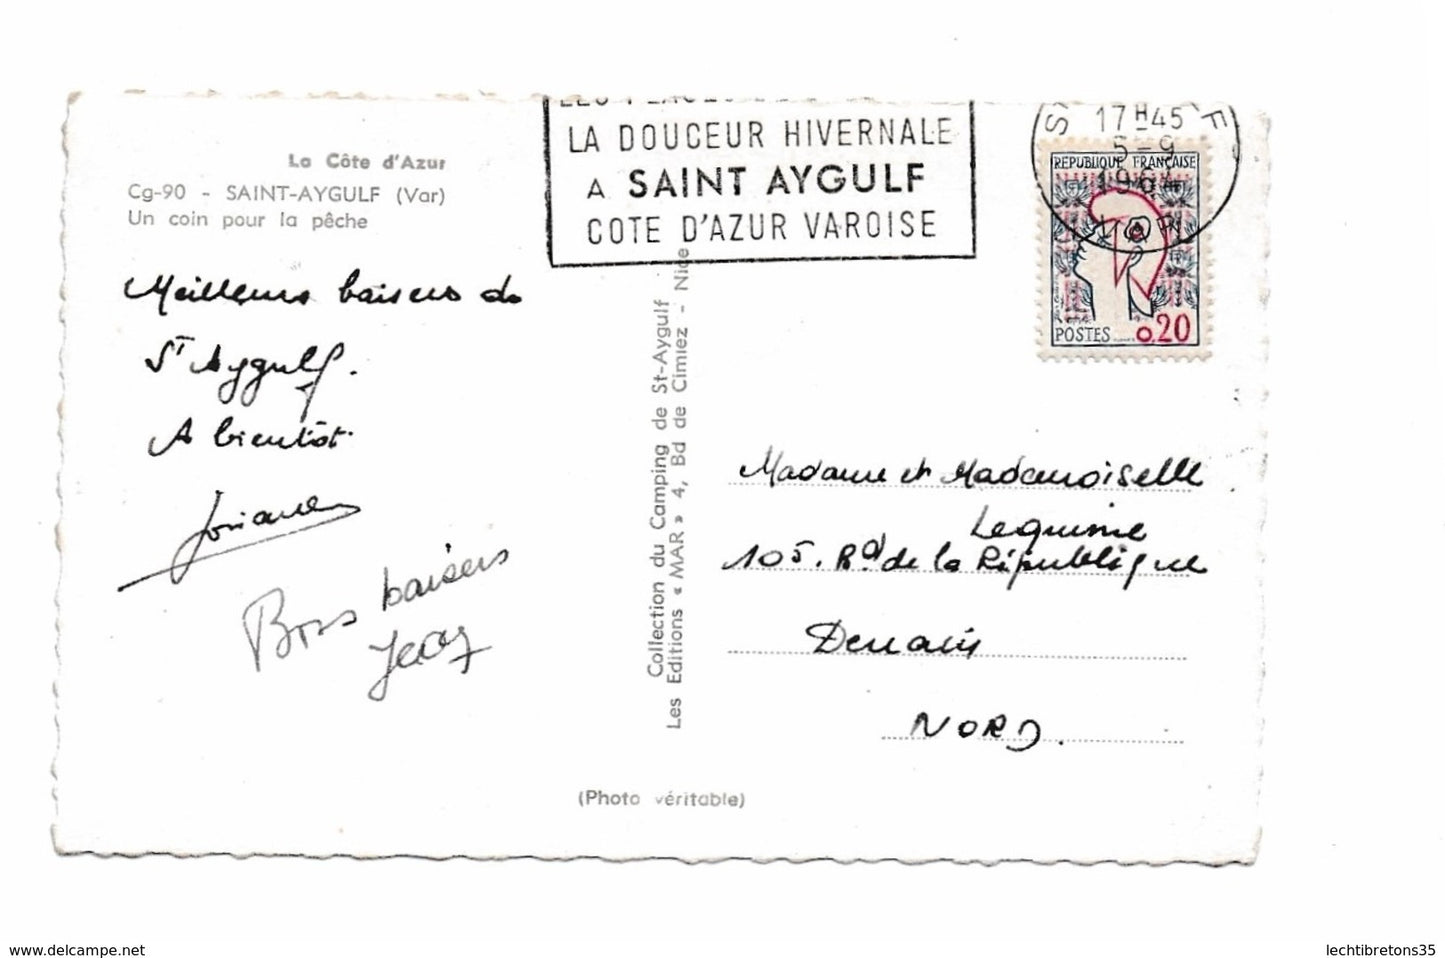 La Côte d'Azur
Cg-90 - SAINT-AYGULF (Var)
Un coin pour la pêche
LA DOUCEUR HIVERNALE
A SAINT AYGULF
COTE D'AZUR VAROISE
17H45
5-9
VAR
REPUBLIQUE FRANÇAISE
POSTES
0.20
Meilleurs baisers de
ST Aygulf.
A bientôt.
Bons baisers
Collection du Camping de St-Aygulf
Les Editions « MAR » 4, Bd de Cimiez - Nice
Madame et Mademoiselle
Lequime
105. Bd de la République
Denain
NORD.
(Photo véritable)
www.delcampe.net
lechtibretons35